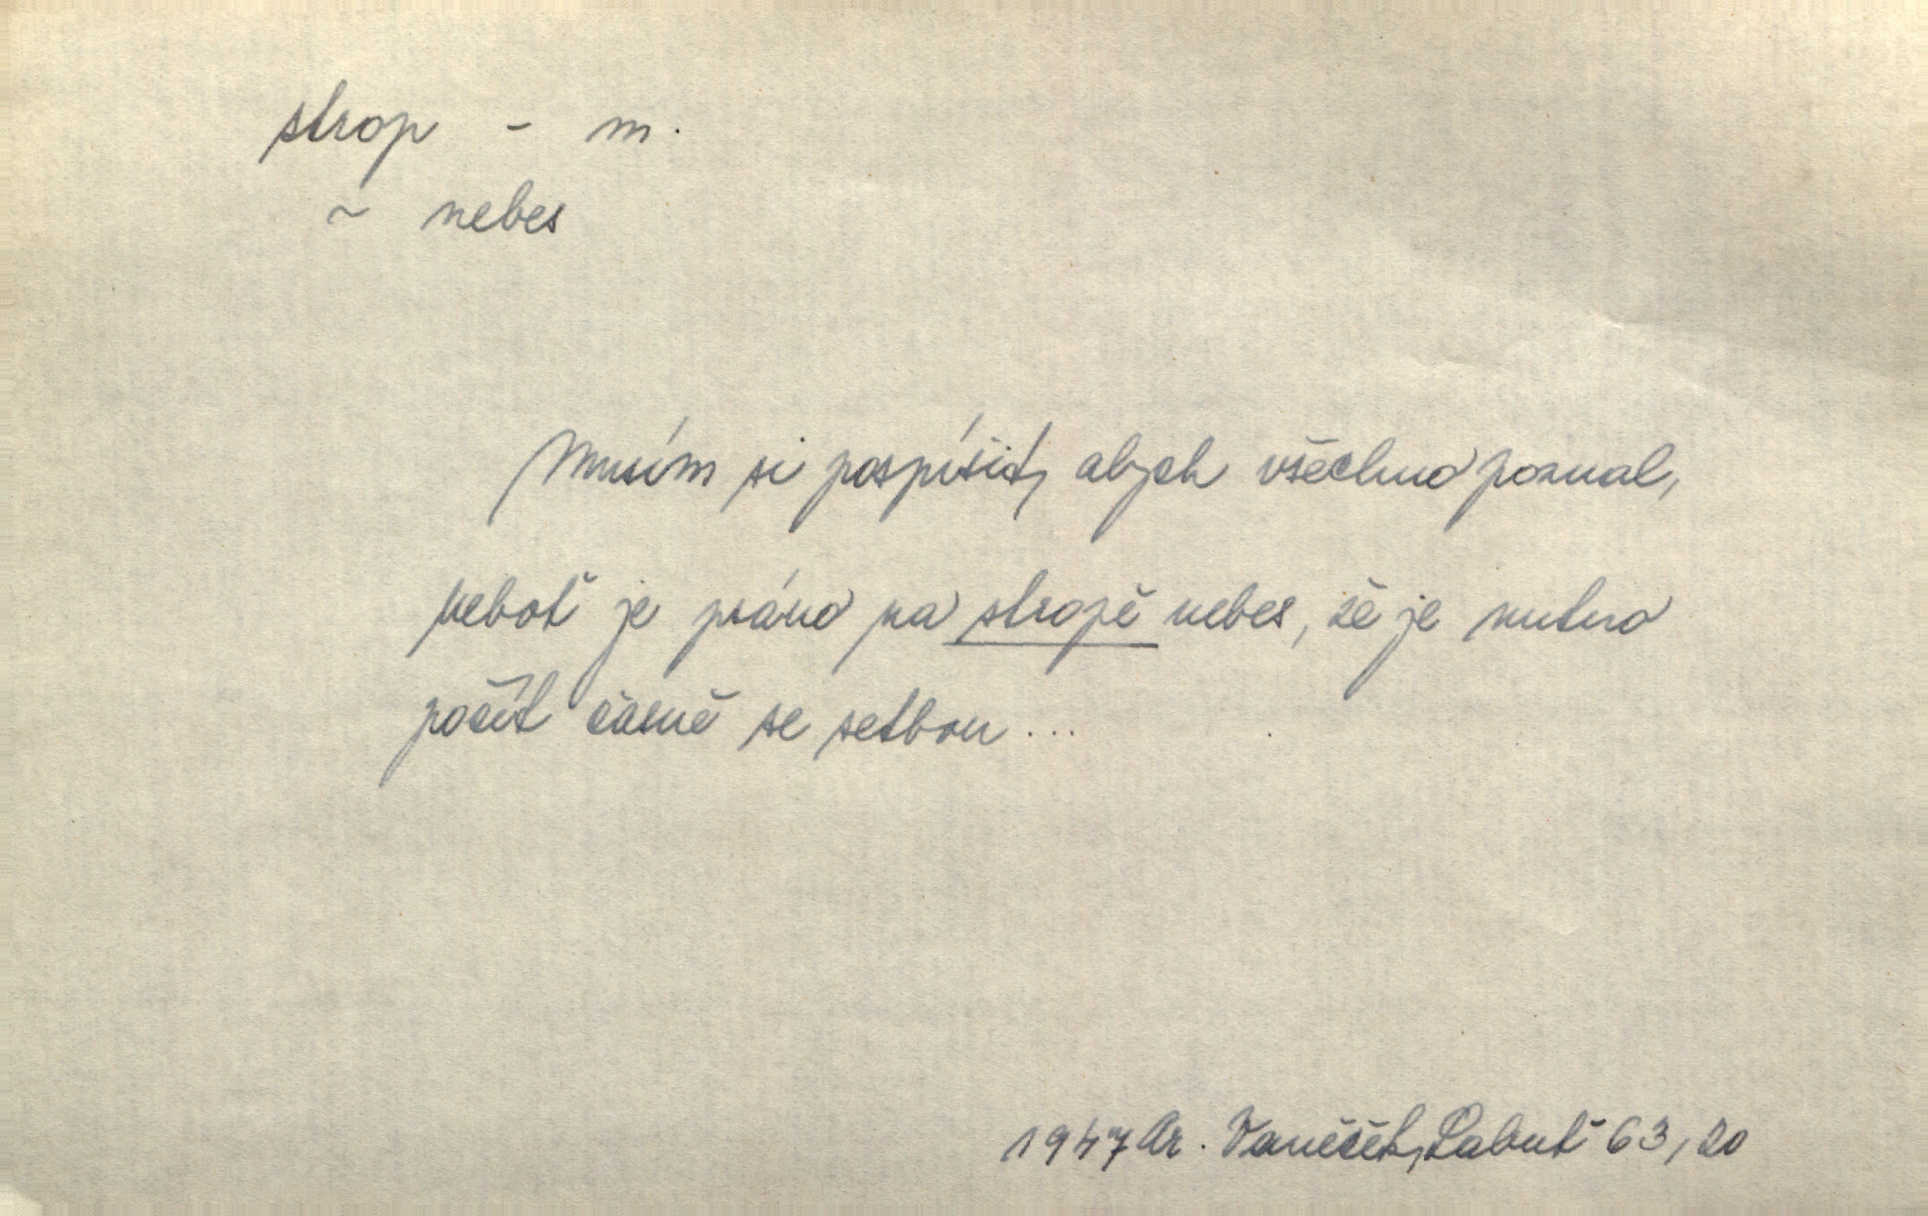 strop - m.
~ nebes
Musím si pospíšit, abych všechno poznal,
neboť je psáno na stropě nebes, že je nutno
počít časně se setbou...
1947 Ar. Vaněček, Labuť 63, 20